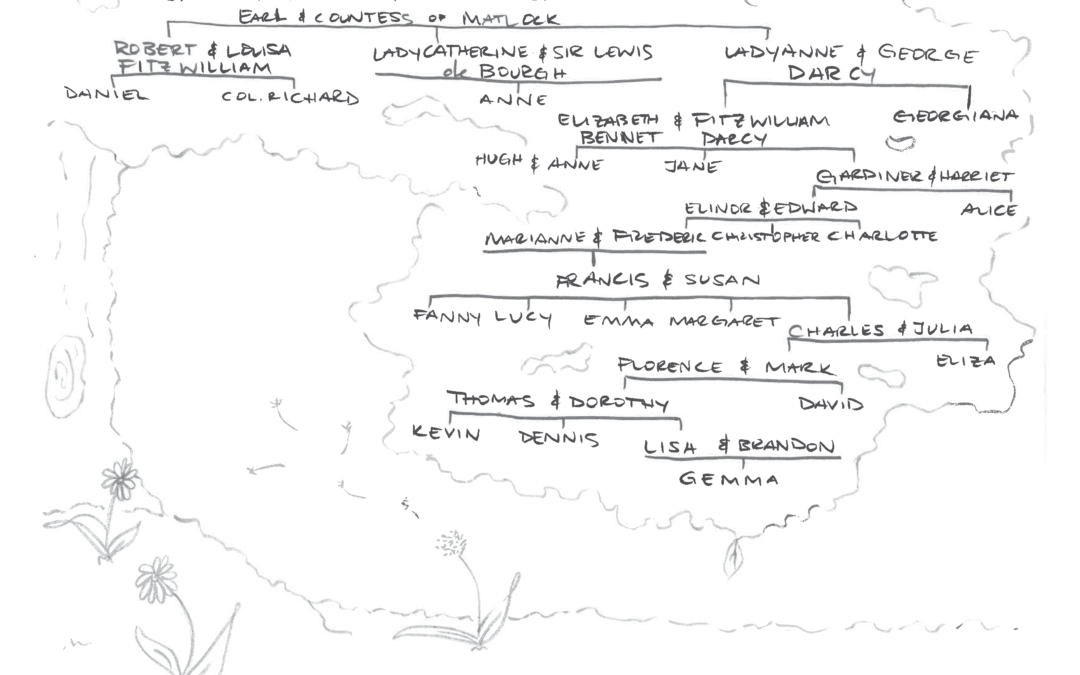 EARL & COUNTESS OF MATLOCK
ROBERT & LOUISA LADY CATHERINE & SIR LEWIS LADY ANNE & GEORGE
FITZWILLIAM de BOURGH DARCY
DANIEL COL. RICHARD ANNE GEORGIANA
ELIZABETH & FITZWILLIAM
BENNET DARCY
HUGH & ANNE JANE GARDINER & HARRIET
ELINOR & EDWARD ALICE
MARIANNE & FREDERIC CHRISTOPHER CHARLOTTE
FRANCIS & SUSAN
FANNY LUCY EMMA MARGARET CHARLES & JULIA
FLORENCE & MARK ELIZA
THOMAS & DOROTHY DAVID
KEVIN DENNIS LISA & BRANDON
GEMMA